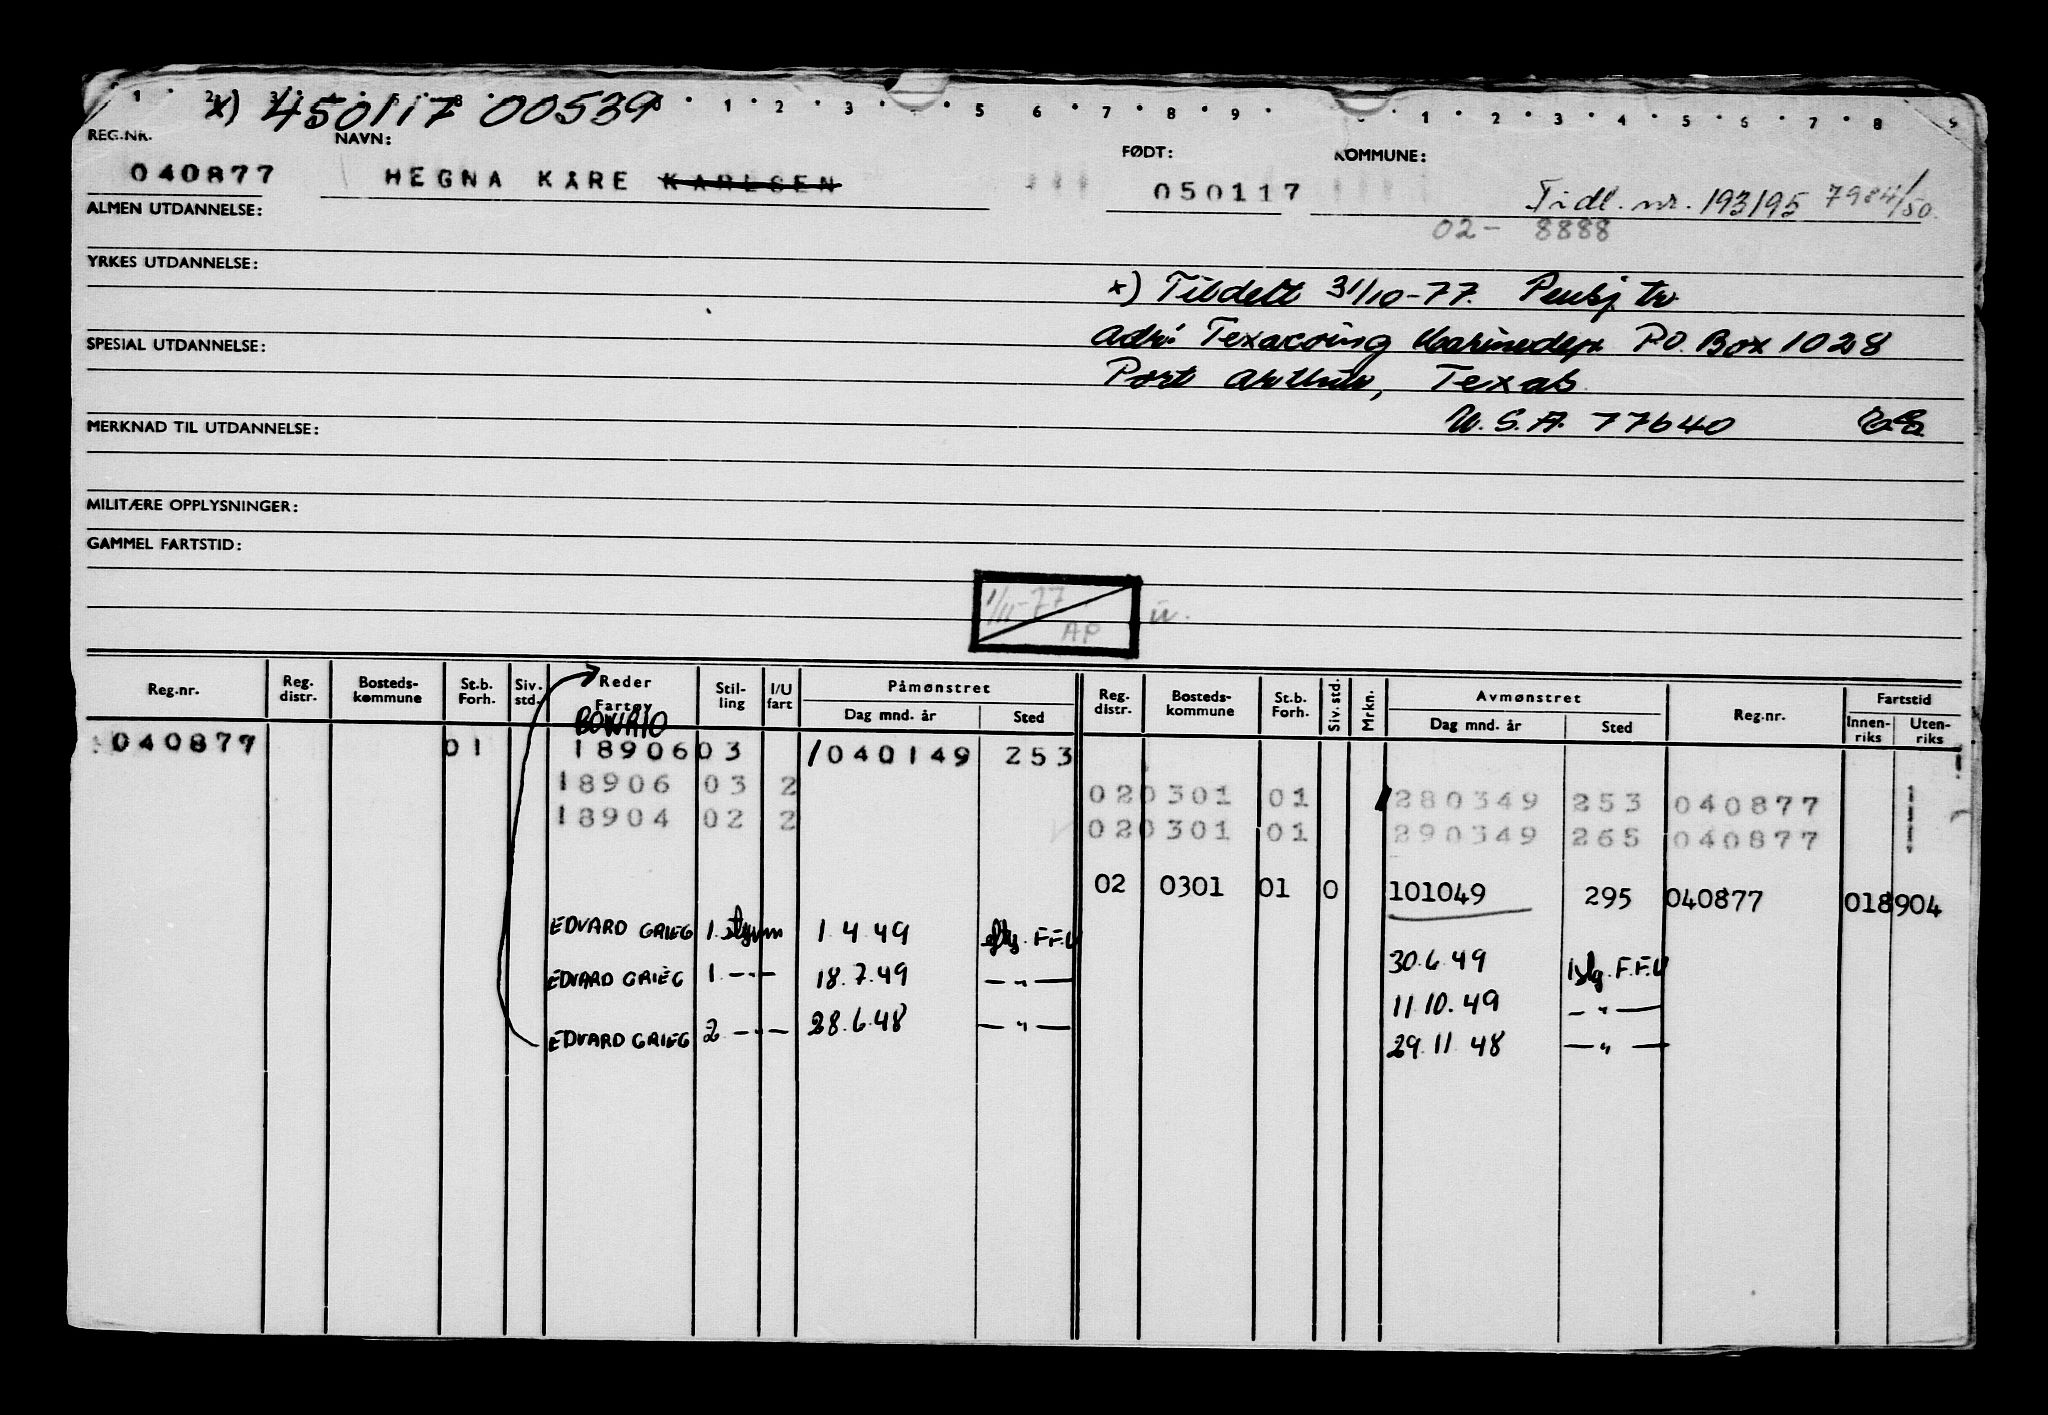 x) 450117 00539
REG.NR. NAVN: FØDT: KOMMUNE:
040877 HEGNA KÅRE KARLSEN 050117
Tidl. nr. 193195 7984/50.
02- 8888
ALMEN UTDANNELSE:
YRKES UTDANNELSE:
x) Tildelt 31/10-77. Pensj. tr
adr: Texacoing Marinedep PO. Box 1028
SPESIAL UTDANNELSE:
Port Arthur, Texas
U.S.A. 77640
MERKNAD TIL UTDANNELSE:
MILITÆRE OPPLYSNINGER:
GAMMEL FARTSTID:
1/11-77 AP
Reg.nr. Reg. distr. Bosteds-kommune St.b. Forh. Siv. std. Reder Fartøy Stil-ling I/U fart Påmønstret Dag mnd. år Sted Reg. distr. Bosteds-kommune St.b. Forh. Siv. std. Mrkn. Avmønstret Dag mnd. år Sted Reg.nr. Fartstid Innen-riks Uten-riks
040877 01 18906 03 1040149 253
18906 03 2 020301 01 280349 253 040877
18904 02 2 020301 01 290349 265 040877
02 0301 01 0 101049 295 040877 018904
EDVARD GRIEG 1. styrm 1.4.49 F.F.U 30.6.49 F.F.U
EDVARD GRIEG 1. -"- 18.7.49 -"- 11.10.49 -"-
EDVARD GRIEG 2. -"- 28.6.48 -"- 29.11.48 -"-